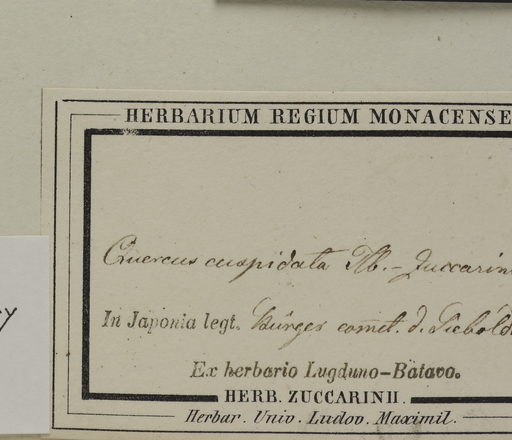 HERBARIUM REGIUM MONACENSE
Quercus cuspidata Th. - Zuccarini
In Japonia legt. Bürger comet. d. Siebold
Ex herbario Lugduno-Batavo.
HERB. ZUCCARINII.
Herbar. Univ. Ludov. Maximil.
y